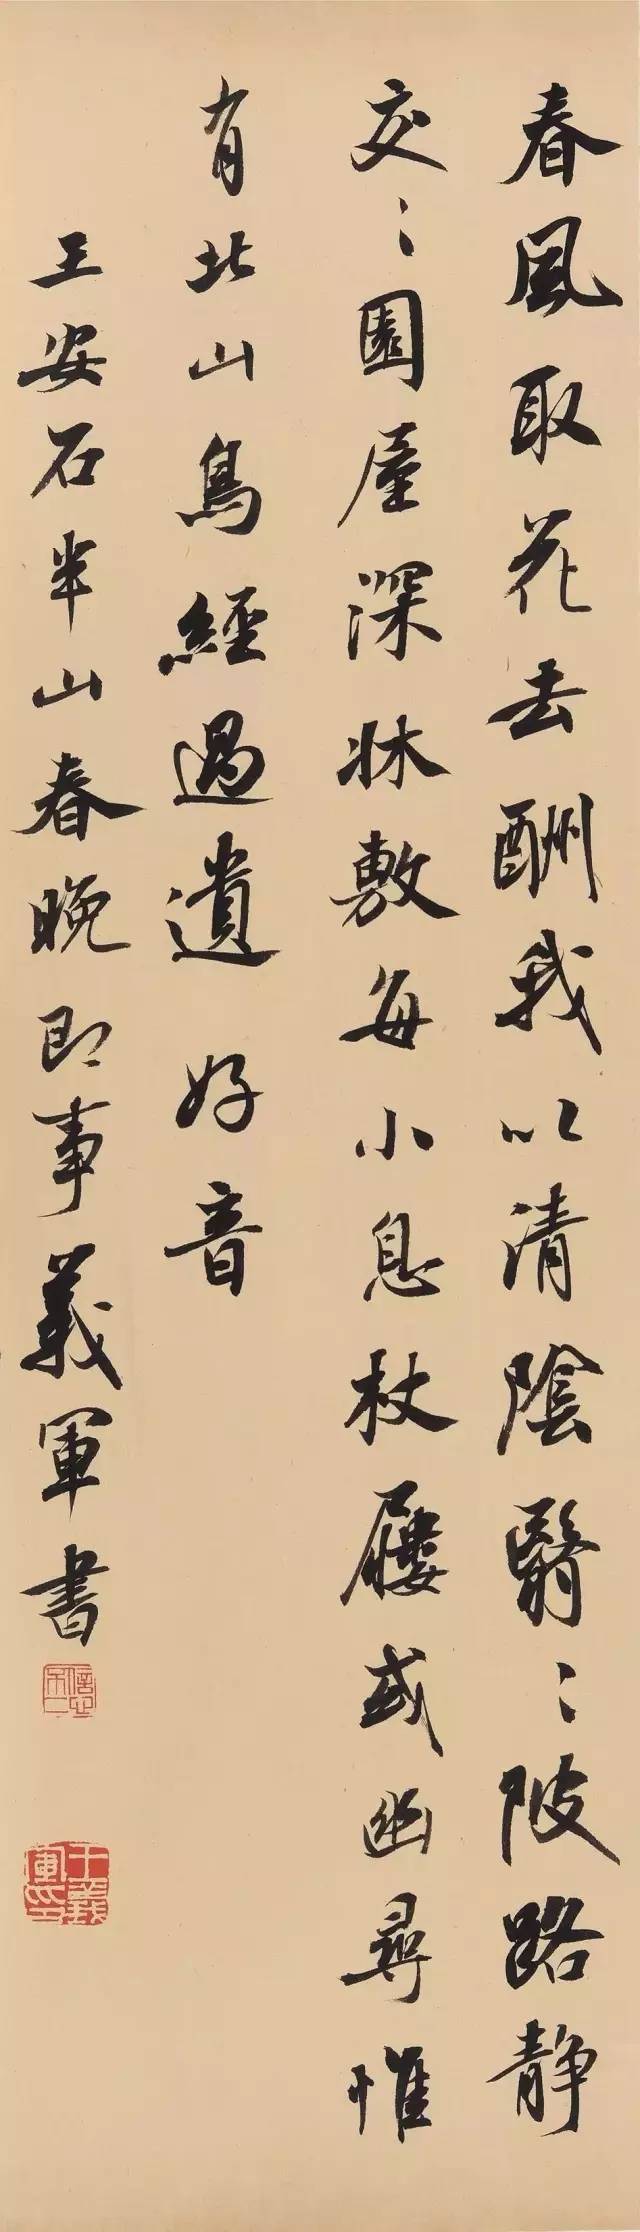 春風取花去酬我以清陰翳〻陂路静
交〻園屋深牀敷每小息杖屨或幽尋惟
有北山鳥經過遺好音
王安石半山春晚即事義軍書
王義軍印